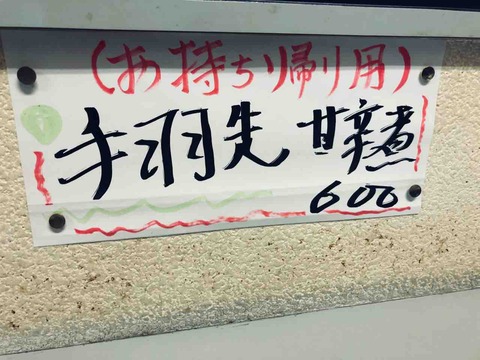 (お持ち帰り用)
手羽先 甘辛煮
600